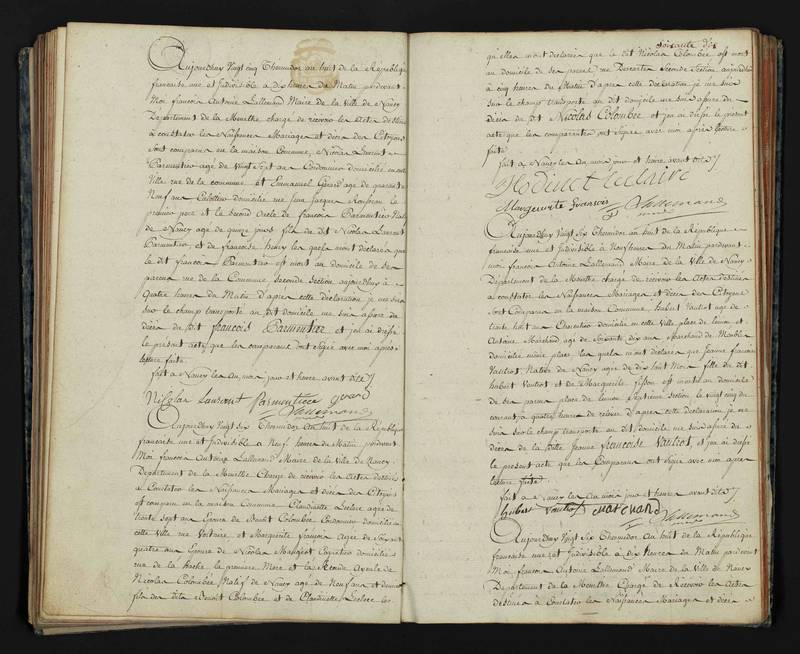 Aujourdhuy Vingt cinq Thermidor an huit de la République
françoise une et Indivisible à dix heures du Matin pardevant
Moi françois Antoine Lallemand Maire de la Ville de Nancy
Département de la Meurthe chargé de recevoir les Actes destinés
à constater les Naissances Mariages et décès des Citoyens
sont comparus en la maison Commune, Nicolas Laurent
Parmentier agé de Vingt sept ans Cordonnier domicilié en cette
Ville rue de la commune, et Emmanuel Gerard agé de quarante
Neuf ans domicilié rue Jean Jacques Rousseau le
premier pere et le Second Oncle de françois Parmentier Natif
de Nancy agé de quinze jours fils du dit Nicolas Laurent
Parmentier et de françoise henry les quels m'ont déclaré que
le dit françois Parmentier est mort au domicile de ses
parens rue de la Commune Seconde Section, aujourdhuy à
Quatre heures du Matin d'après cette déclaration je me suis
sur le champ transporté au dit domicile me suis assuré du
décès du dit françois Parmentier et j'en ai dressé
le présent acte que les comparans ont signé avec moi après
lecture faite
fait à Nancy les an, mois jour et heure avant dites
Nicolas Laurent Parmentier gerard
Lallemand
Aujourdhuy Vingt Six Thermidor an huit de la République
françoise une et Indivisible à Neuf heures du Matin pardevant
Moi françois Antoine Lallemand Maire de la Ville de Nancy
Département de la Meurthe Chargé de recevoir les Actes destinés
à Constater les Naissances Mariages et décès des Citoyens
est comparu en la maison Commune Claudinette Leclerc agée de
trente sept ans Epouse de Benoit Colombée Cordonnier domicilié en
cette Ville rue Voltaire et Marguerite françois Agée de Soixante
quatre ans Epouse de Nicolas domiciliée
rue de la la première Mere et la Seconde Ayeule de
Nicolas Colombée Natif de Nancy agé de Neuf ans et demi
fils des dits Benoit Colombée et de Claudinette Leclerc les
soixante dix
qu'elles m'ont déclarées que le dit Nicolas Colombée est mort
au domicile de ses parens rue Seconde Section, aujourdhuy
à cinq heures du Matin d'après cette déclaration je me suis
sur le champ transporté au dit domicile me suis assuré du
décès du dit Nicolas Colombée et j'en ai dressé le présent
acte que les comparantes ont signé avec moi après lecture
faite
fait à Nancy les an mois jour et heure avant dites
leclaire
Marguerite francois Lallemand
Aujourdhuy Vingt Six Thermidor an huit de la République
françoise une et Indivisible à Neuf heures du Matin pardevant
moi françois Antoine Lallemand Maire de la Ville de Nancy
Département de la Meurthe chargé de recevoir les Actes destinés
à constater les Naissances Mariages et décès des Citoyens
sont Comparus en la maison Commune, hubert Vautiot agé de
trente huit ans Charcutier domicilié en cette Ville place de et
Antoine Marchand agé de Soixante dix ans Marchand de Meubles
domicilié même place les quels m'ont déclaré que Jeanne françoise
Vautiot, Native de Nancy agée de dix huit Mois fille du dit
hubert Vautiot et de Marguerite est morte au domicile
de ses parens place de Septieme Section le vingt cinq du
courant à quatre heures de relevée d'après cette déclaration je me
suis sur le champ transporté au dit domicile me suis assuré du
décès de la ditte Jeanne françoise Vautiot, et j'en ai dressé
le présent acte que les Comparans ont signé avec moi après
lecture faite
fait à Nancy les an mois jour et heures avant dites
hubert Vautiot marchand
Lallemand
Aujourdhuy Vingt Six Thermidor an huit de la République
françoise une et Indivisible à dix heures du Matin pardevant
Moi françois Antoine Lallemand Maire de la Ville de Nancy
Département de la Meurthe Chargé de Recevoir les Actes
destinés à Constater les Naissances Mariages et décès